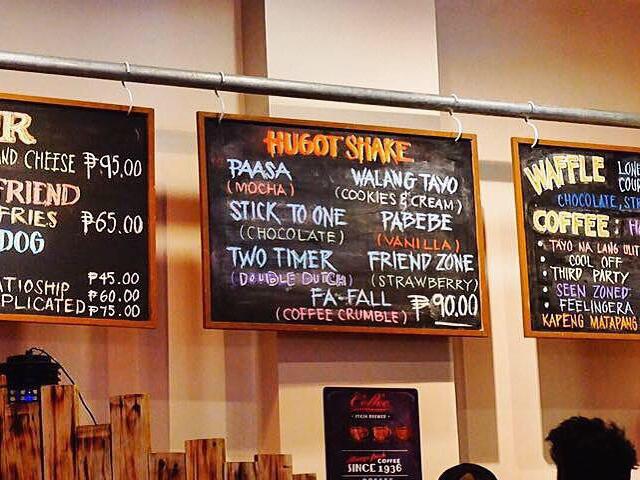 R
AND CHEESE ₱95.00
FRIEND
FRIES ₱65.00
DOG
₱45.00
ATIOSHIP ₱60.00
PLICATED ₱75.00
HUGOT SHAKE
PAASA
(MOCHA)
WALANG TAYO
(COOKIES & CREAM)
STICK TO ONE
(CHOCOLATE)
PABEBE
(VANILLA)
TWO TIMER
(DOUBLE DUTCH)
FRIEND ZONE
(STRAWBERRY)
FA-FALL
(COFFEE CRUMBLE)
₱90.00
WAFFLE
LONE
COU
CHOCOLATE, STR
COFFEE:
• TAYO NA LANG ULIT
• COOL OFF
• THIRD PARTY
• SEEN ZONED
• FEELINGERA
KAPENG MATAPANG
Coffee
COFFEE
SINCE 1936